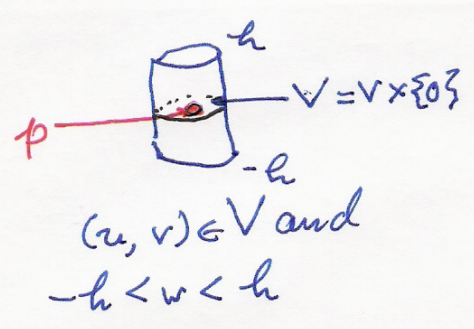 h
V = V × {0}
p
-h
(u, v) ∈ V and
-h < w < h